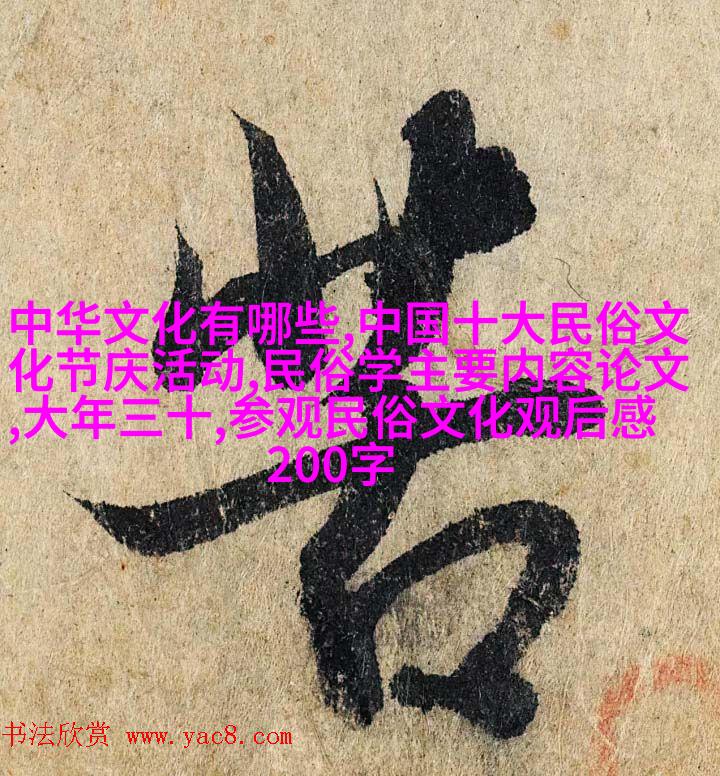 苦
中华文化有哪些,中国十大民俗文
化节庆活动,民俗学主要内容论文
,大年三十,参观民俗文化观后感
200字
书法欣赏 www.yac8.com